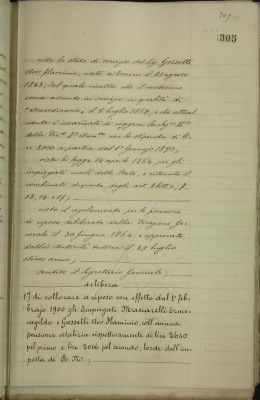 305
vista lo stato di servizio del Sig. Gosselli
Avv. Flaminio, nato a Torino il 21 agosto
1843, dal quale risulta che il medesimo
venne assunto in servizio in qualità di
straordinario, il 5 luglio 1862, e che attual
mente è incaricato di reggere la
della con lo stipendio di li
re 3000 a partire dal 1° Gennajo 1890;
vista la legge 14 aprile 1864 per gli
impiegati civili dello Stato, e ritenuto il
combinato disposto degli art. 7,
12, 14 e 17;
visto il regolamento per le pensioni
di riposo deliberato dalla Direzione Ge-
nerale il 30 giugno 1864, e approvato
dalla Autorità tutoria il 29 luglio
stesso anno;
sentito il Segretario Generale;
delibera
1° di collocare a riposo con effetto dal 1° feb-
brajo 1900 gli Impiegati Masciarelli Erme-
negildo e Gosselli Avv. Flaminio, coll'annua
pensione vitalizia rispettivamente di lire 3640
pel primo e lire pel secondo, lorde dall'im-
posta di R. M.;